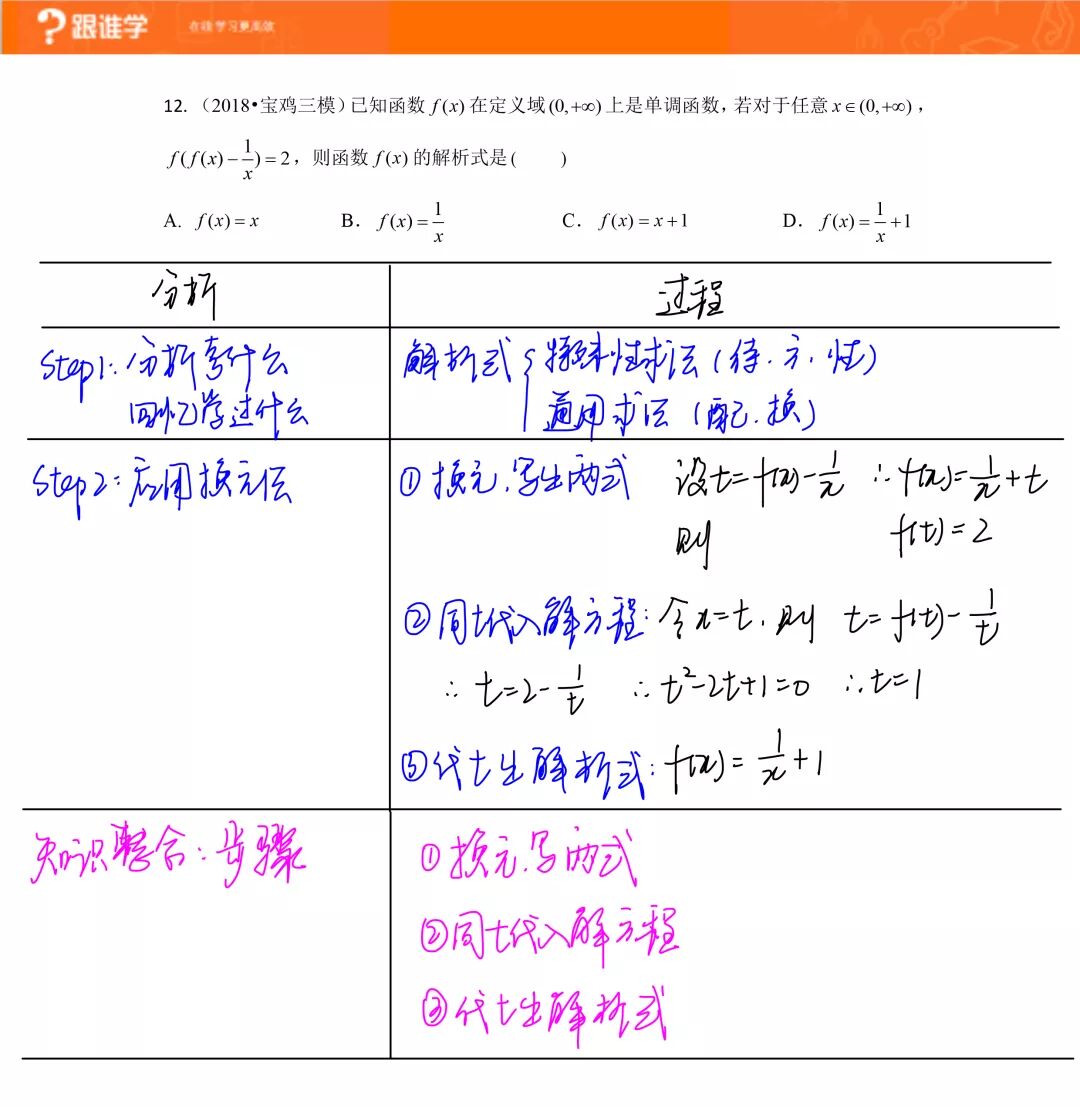 跟谁学 在线学习更高效
12. （2018•宝鸡三模）已知函数 f(x) 在定义域(0,+∞) 上是单调函数，若对于任意 x∈(0,+∞)，
f(f(x)-1/x)=2，则函数 f(x) 的解析式是(  )
A. f(x)=x B. f(x)=1/x C. f(x)=x+1 D. f(x)=1/x+1
分析 过程
Step1: 分析考什么 解析式{特殊性求法(待.方.性)
回忆学过什么 通用求法(配.换)
Step2: 应用换元法 ①换元.写出两式 设t=f(x)-1/x ∴f(x)=1/x+t
则 f(t)=2
②同t代入解方程: 令x=t. 则 t=f(t)-1/t
∴t=2-1/t ∴t²-2t+1=0 ∴t=1
③代t出解析式: f(x)=1/x+1
知识整合: 步骤 ①换元.写两式
②同t代入解方程
③代t出解析式